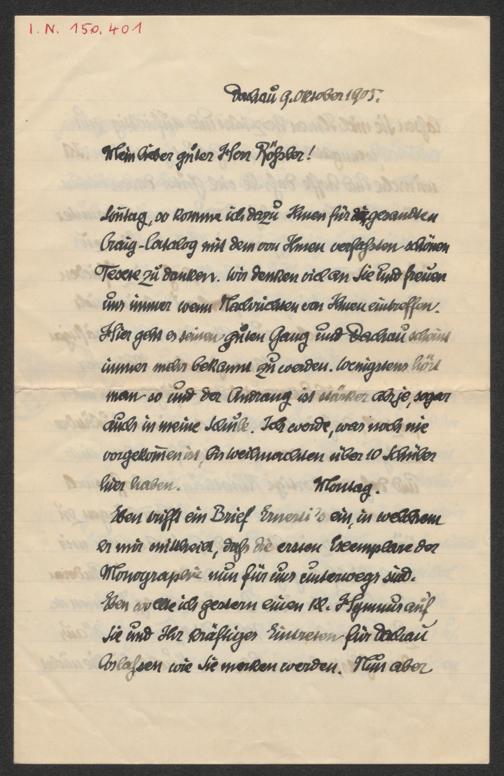 I. N. 150.401
Dachau 9. Oktober 1905.
Mein lieber guter Herr Rößler!
Sontag, so komme ich dazu Ihnen für den gesandten
Craig-Catalog mit dem von Ihnen verfassten schönen
Texte zu danken. Wir denken viel an Sie und freuen
uns immer wenn Nachrichten von Ihnen eintreffen.
Hier geht es seinen guten Gang und Dachau scheint
immer mehr bekannt zu werden. Wenigstens hört
man so und der Andrang ist stärker als je, sogar
auch in meine Schule. Ich werde, was noch nie
vorgekommen ist, bis Weihnachten über 10 Schüler
hier haben. Montag.
Eben trifft ein Brief Ernersti's ein, in welchem
er mir mitteilt, daß die ersten Exemplare der
Monographie nun für uns unterwegs sind.
Eben wollte ich gestern einen Hymnus auf
Sie und Ihr kräftiges Eintreten für Dachau
loslassen wie Sie merken werden. Nun aber